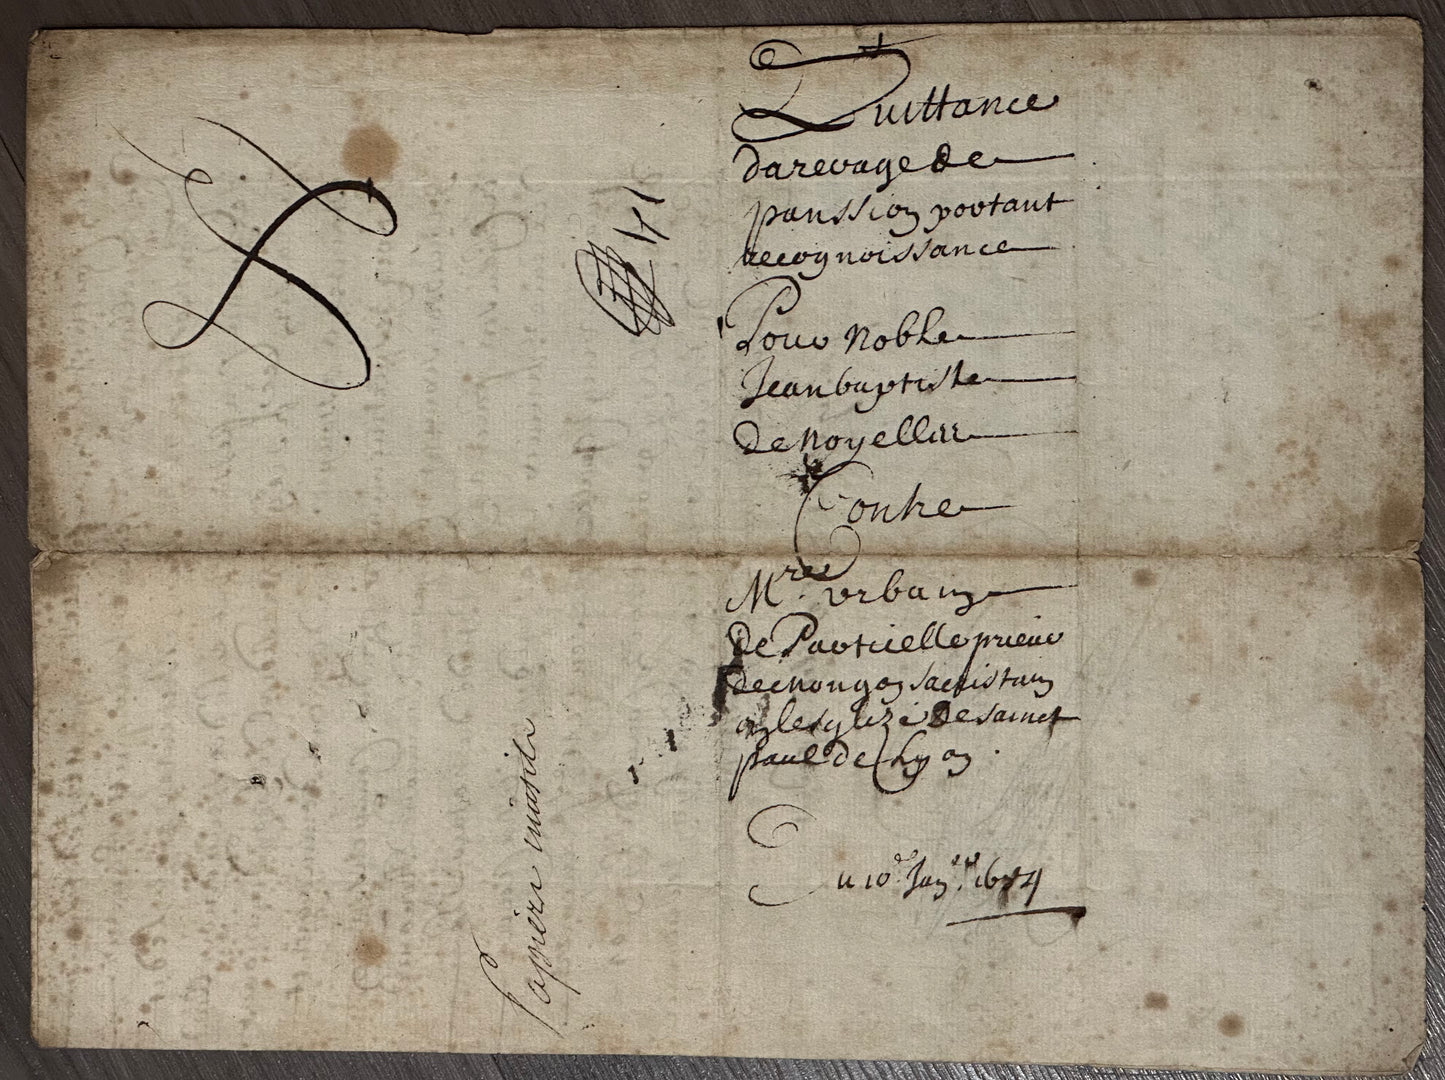 Quittance
darerage de
panssion portant
recognoissance
Pour Noble
Jean baptiste
de Noyellier
Contre
Mre. urbain
de Particelle prieur
de sacristain
en lesglize de sainct
paul de Lyon.
Du 10e. Janer. 1654
Papiers inutils